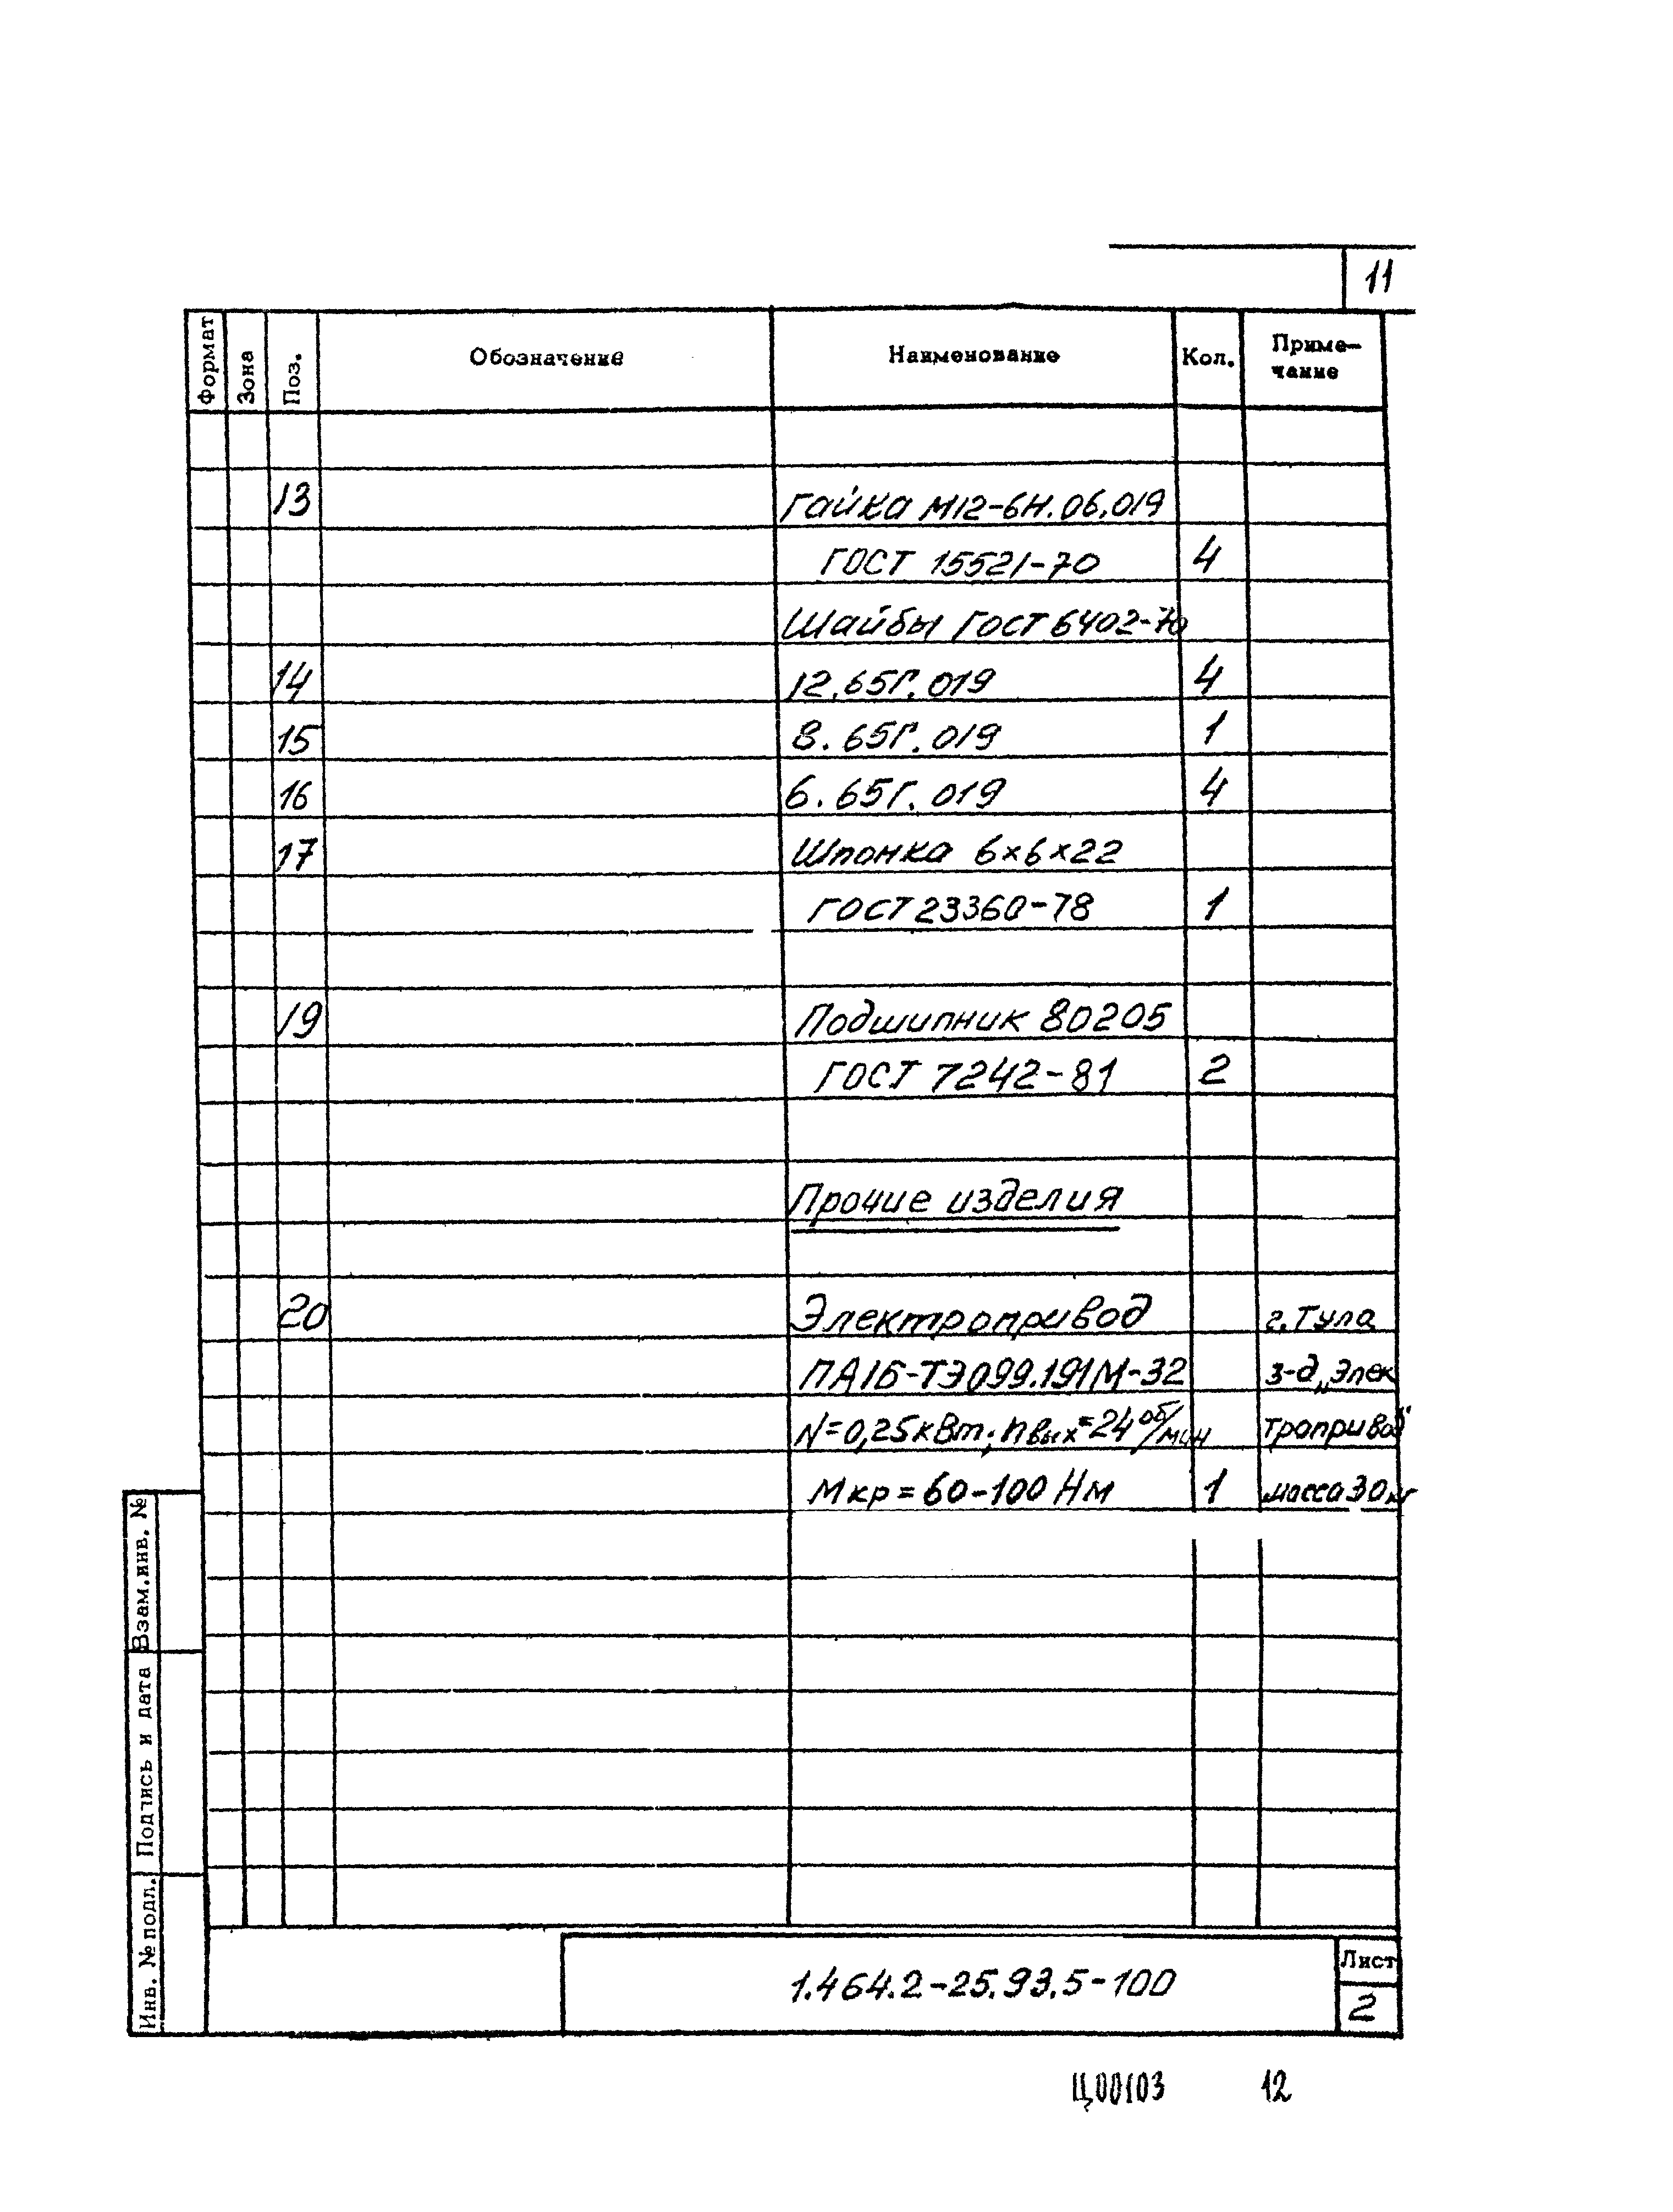 11
Формат Зона Поз. Обозначение Наименование Кол. Приме-
чание
13 Гайка М12-6Н.06.019
ГОСТ 15521-70 4
Шайбы ГОСТ 6402-70
14 12.65Г.019 4
15 8.65Г.019 1
16 6.65Г.019 4
17 Шпонка 6×6×22
ГОСТ 23360-78 1
19 Подшипник 80205
ГОСТ 7242-81 2
Прочие изделия
20 Электропривод г.Тула
ПА1Б-ТЭ099.191М-32 з-д „Элек
N=0,25кВт; nвых=24об/мин тропривод"
Мкр=60-100 Нм 1 масса 30 кг
Взам.инв. №
Подпись и дата
Инв. № подл.
1.464.2-25.93.5-100
Лист
2
Ц00103 12